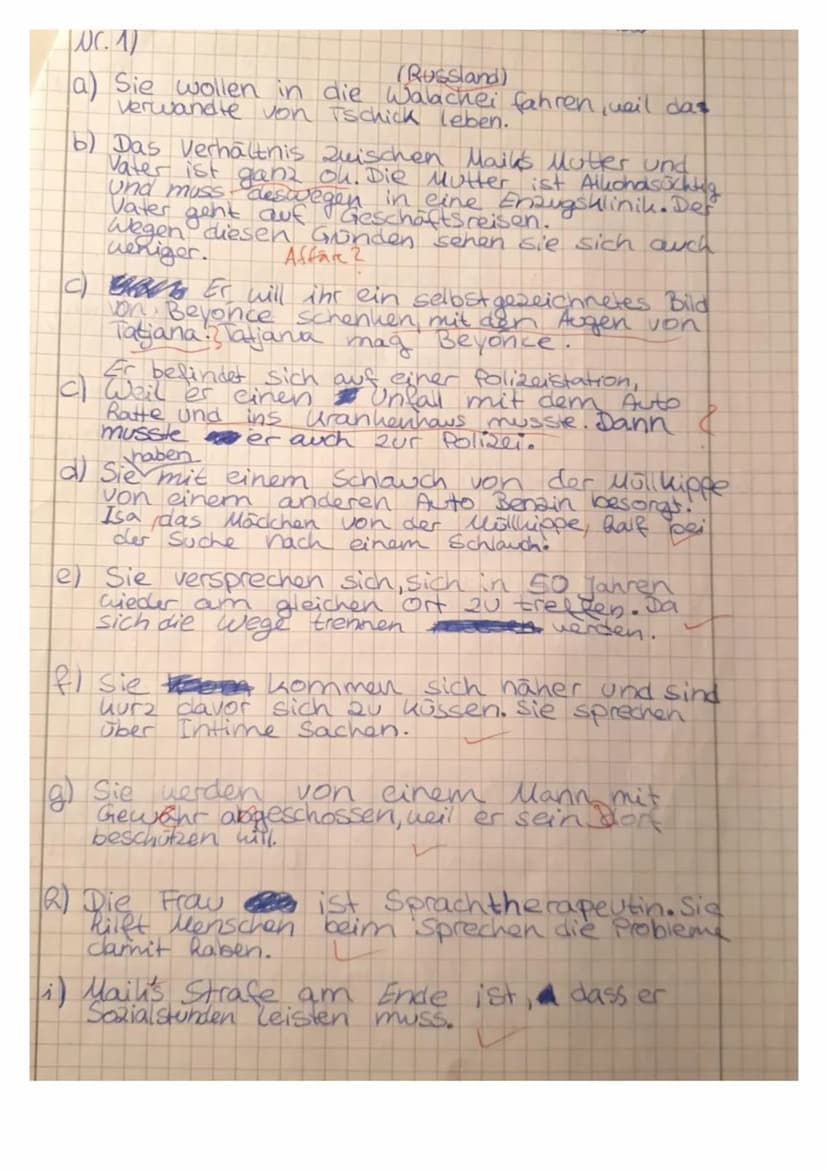 Nr. 1)
(Russland)
a) Sie wollen in die Walachei fahren, weil das
verwandte von Tschick leben.
b) Das Verhältnis zwischen Maiks Mutter und
Vater ist ganz ok. Die Mutter ist Alkoholsüchtig
und muss deswegen in eine Enzugsklinik. Der
Vater geht auf Geschäftsreisen.
Wegen diesen Gründen sehen sie sich auch
weniger.
Affäre?
c) Er will ihr ein selbstgezeichnetes Bild
von Beyonce schenken, mit den Augen von
Tatjana. Tatjana mag Beyonce.
Er befindet sich auf einer Polizeistation,
c) Weil er einen Unfall mit dem Auto
hatte und ins Krankenhaus musste. Dann
musste er auch zur Polizei.
haben
d) Sie mit einem Schlauch von der Müllkippe
von einem anderen Auto Benzin besorgt.
Isa, das Mädchen von der Müllkippe, half bei
der Suche nach einem Schlauch.
e) Sie versprechen sich, sich in 50 Jahren
wieder am gleichen Ort zu treffen. Da
sich die Wege trennen werden.
f) Sie kommen sich näher und sind
kurz davor sich zu küssen. Sie sprechen
über Intime Sachen.
g) Sie werden von einem Mann mit
Gewähr abgeschossen, weil er sein Dorf
beschützen will.
h) Die Frau ist Sprachtherapeutin. Sie
hilft Menschen beim Sprechen die Probleme
damit haben.
i) Maik's Strafe am Ende ist, dass er
Sozialstunden leisten muss.